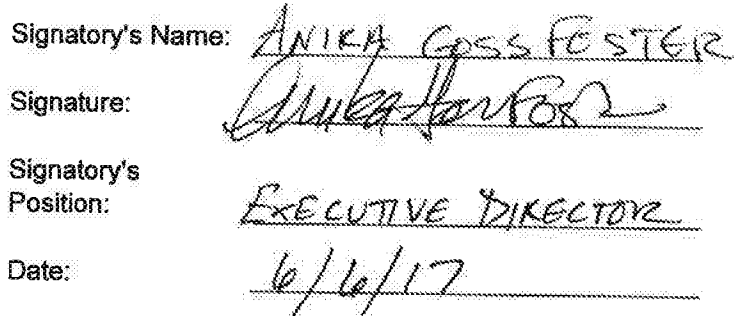 Signatory's Name: ANIKA GOSS FOSTER
Signature: Anika Goss Foster
Signatory's
Position: EXECUTIVE DIRECTOR
Date: 6/6/17